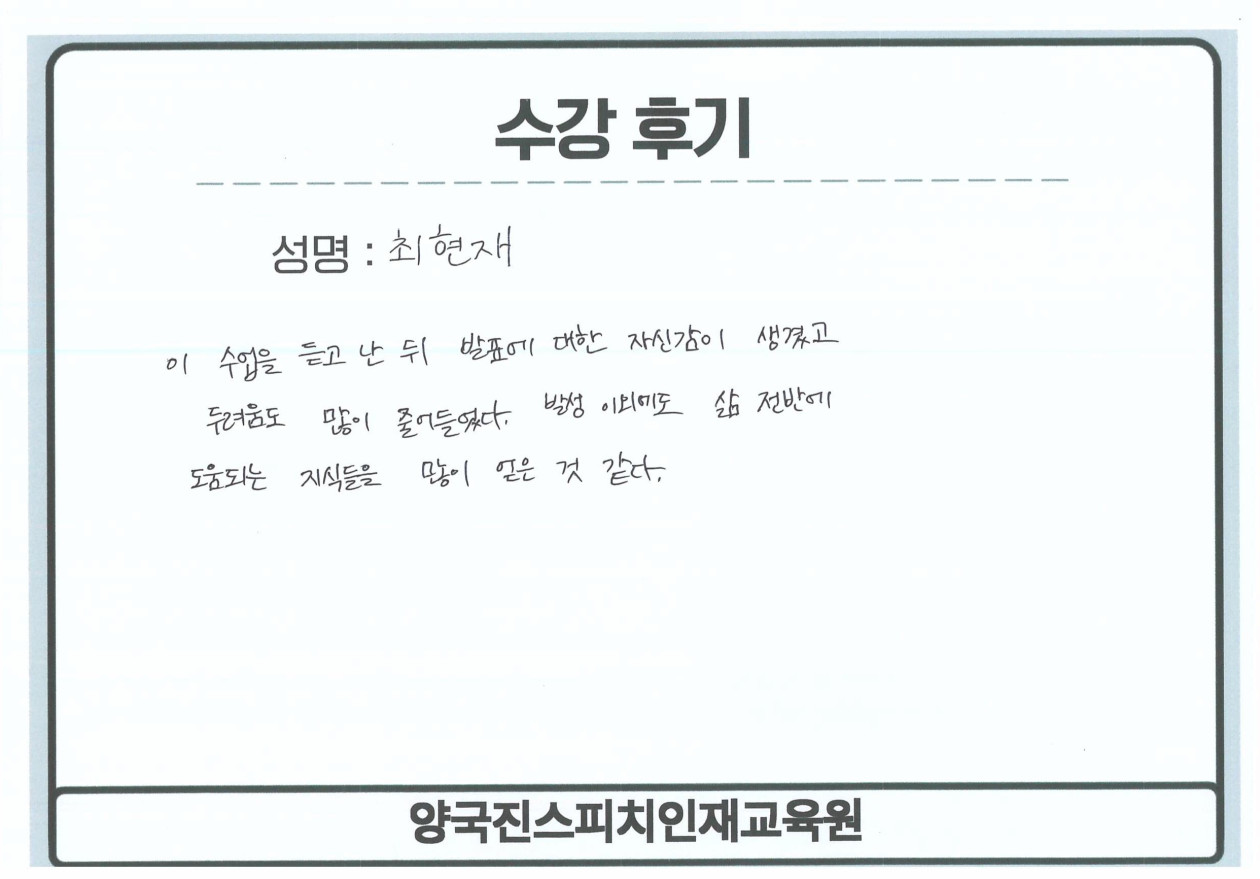 수강 후기
성명 : 최현재
이 수업을 듣고 난 뒤 발표에 대한 자신감이 생겼고
두려움도 많이 줄어들었다. 발성 이외에도 삶 전반에
도움되는 지식들을 많이 얻은 것 같다.
양국진스피치인재교육원